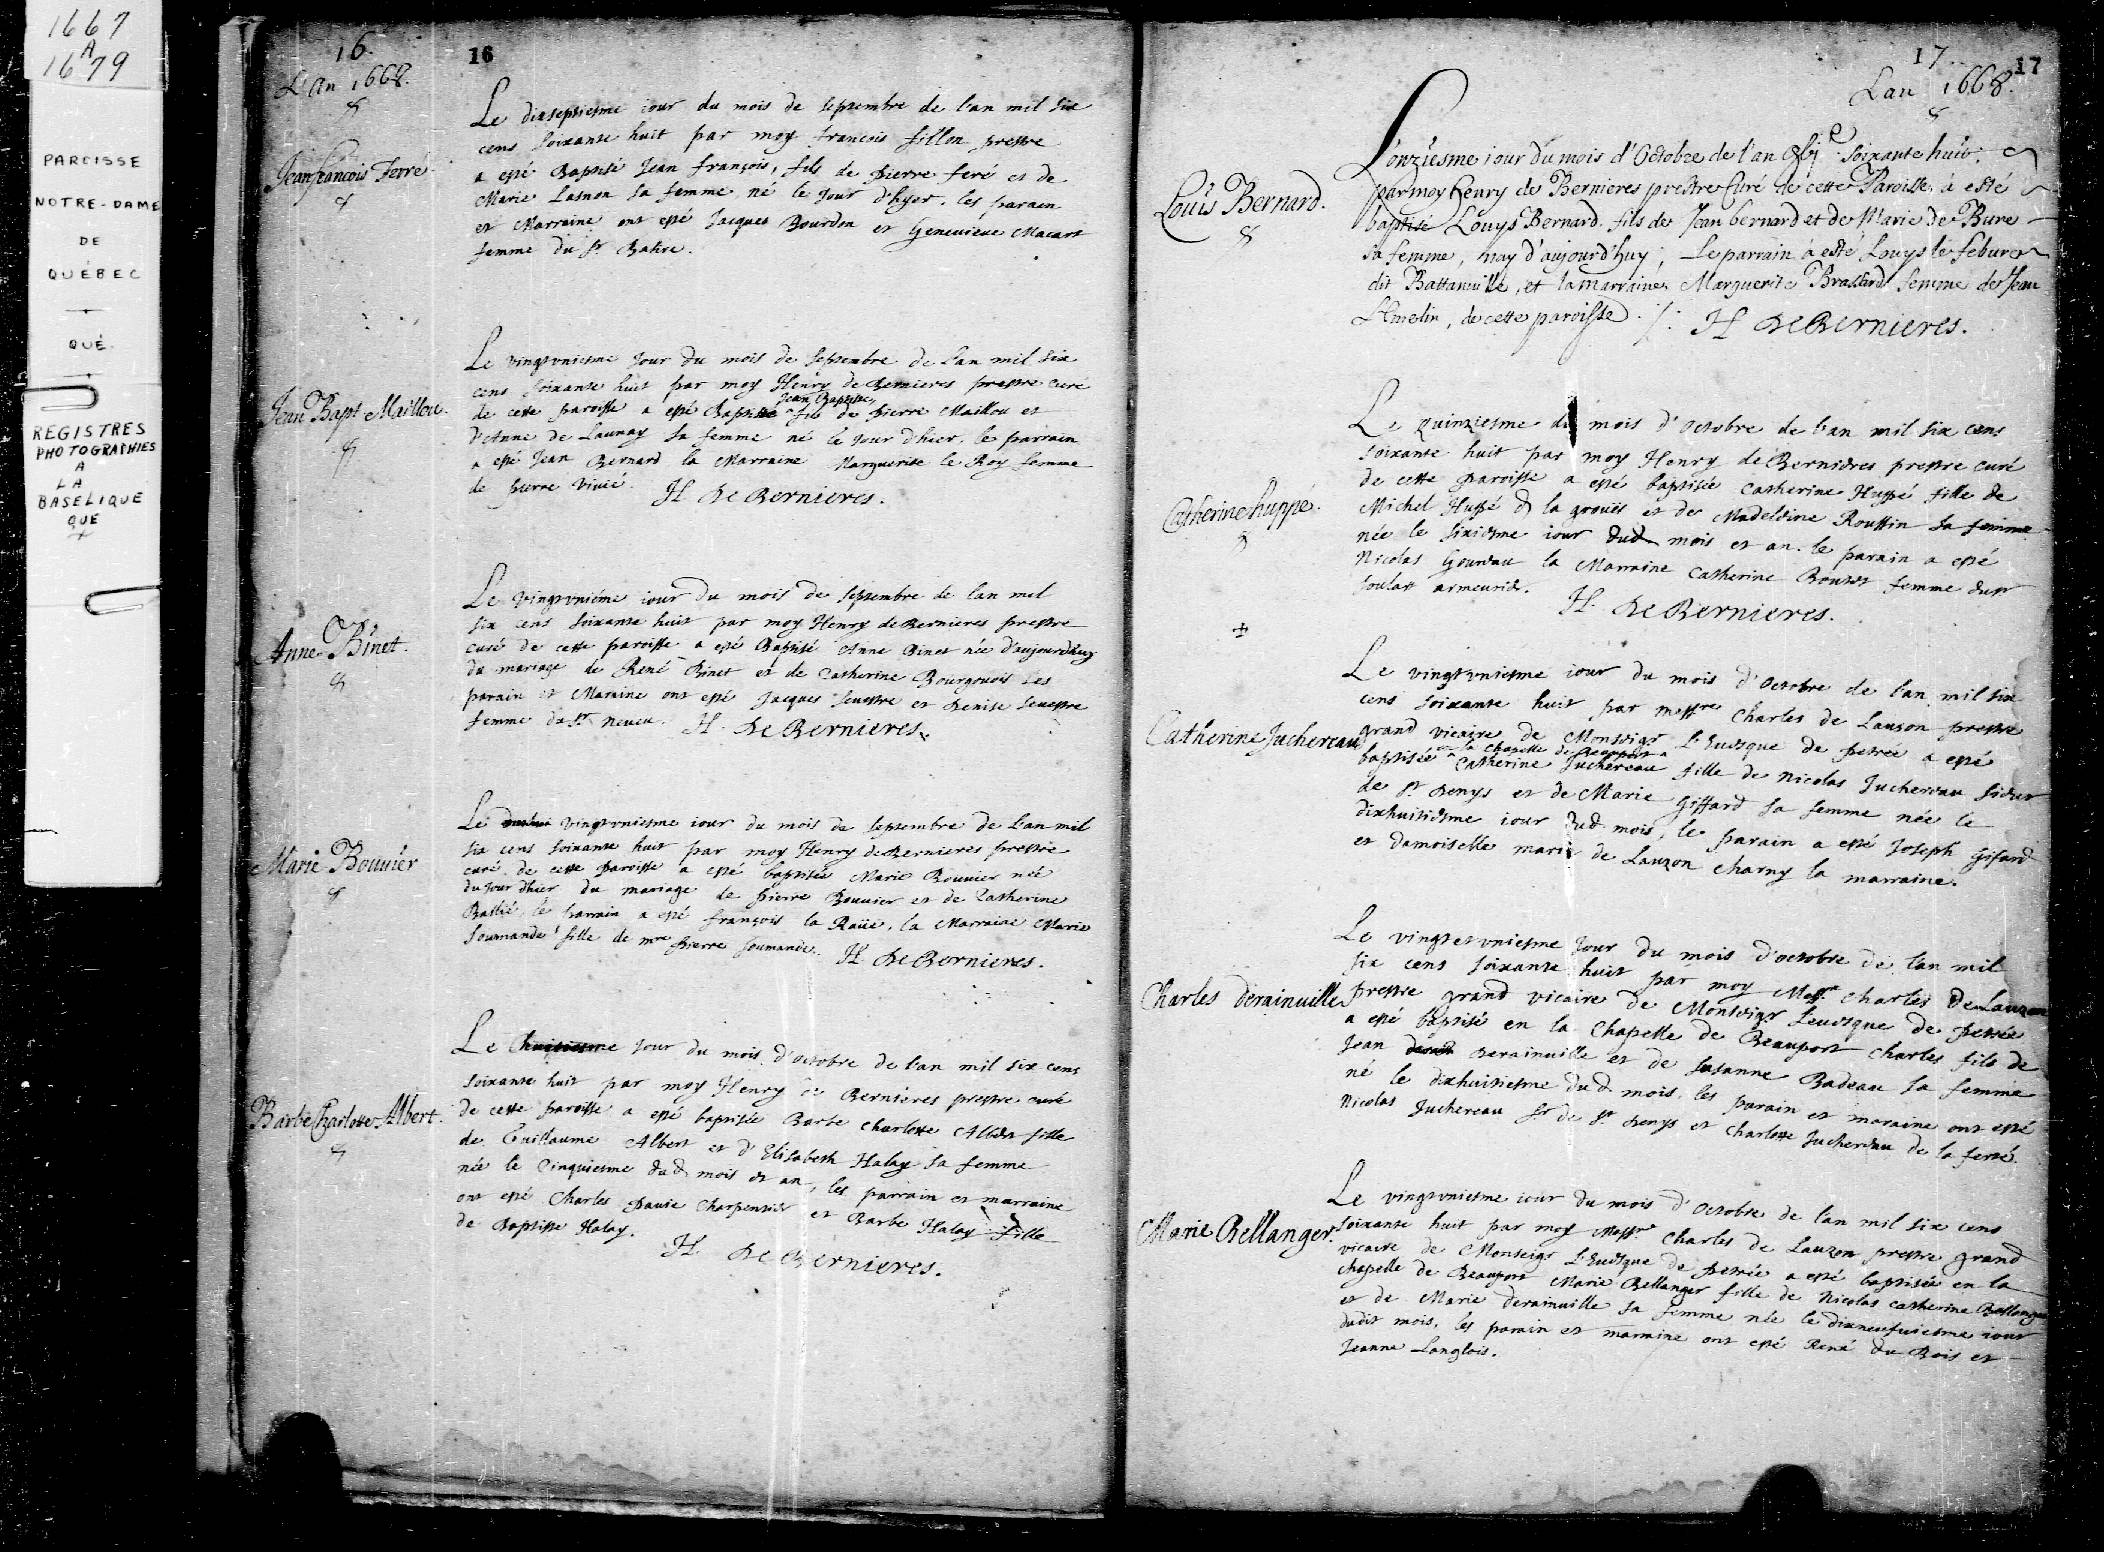 1667
A
1679
PAROISSE
NOTRE-DAME
DE
QUÉBEC
QUÉ.
REGISTRES
PHOTOGRAPHIES
A
LA
BASELIQUE
QUE
16.
16
L'An 1668.
Jean francois Ferré
Le dixseptiesme iour du mois de septembre de l'an mil six
cens soixante huit par moy francois fillon prestre
a esté Baptisé Jean françois, fils de pierre feré et de
Marie Lasnon sa femme né le jour d'hyer. les parain
et Marraine ont esté Jacques Bourdon et Genevieve Macart
femme du Sr. Bahre.
Jean Bapt Maillou.
Le vingtvniesme jour du mois de septembre de l'an mil six
cens soixante huit par moy Henry de Bernieres prestre curé
Jean Baptiste,
de cette paroisse a esté Baptisé ^ fils de pierre Maillou et
d'Anne de Launay sa femme né le jour d'hier, le parrain
a esté Jean Bernard la Marraine Marguerite le Roy femme
de pierre vivié. H. de Bernieres.
Anne Binet.
Le vingtvniéme iour du mois de septembre de l'an mil
six cens soixante huit par moy Henry de Bernieres prestre
curé de cette paroisse a esté Baptisé Anne Binet née d'aujourdhuy
du mariage de René Binet et de Catherine Bourgouois les
parain et Maraine ont esté Jacques sevestre et Denise sevestre
femme du Sr neveu. H. de Bernieres
Marie Bouuier
Le vingtvniesme iour du mois de septembre de l'an mil
six cens soixante huit par moy Henry de Bernieres prestre
curé de cette paroisse a esté baptisée Marie Bouuier née
du jour d'hier du mariage de pierre Bouuier et de Catherine
le parrain a esté françois la Raüe, la Marraine Marie
soumande fille de mre pierre soumande. H. de Bernieres.
Barbe Charlotte Albert.
Le huitiesme jour du mois d'octobre de l'an mil six cens
soixante huit par moy Henry de Bernieres prestre curé
de cette paroisse a esté baptisée Barbe charlotte Albert fille
de Guillaume Albert et d'Elisabeth Halay sa femme
née le cinquiesme dud. mois et an, les parrain et marraine
ont esté Charles pauie charpentier et Barbe Halay fille
de Baptiste Halay.
H. de Bernieres.
17.
17
L'an 1668.
Louis Bernard.
L'onziesme iour du mois d'Octobre de l'an soixante huit.
par moy Henry de Bernieres prestre Curé de cette Paroisse à esté
baptisé Louys Bernard fils de Jean bernard et de Marie de Bure
sa femme, nay d'aujourd'huy; Le parrain à esté Louys le febure
dit Battanville, et la marraine Marguerite Brassard femme de Jean
Hmelin, de cette paroisse. /: H de Bernieres.
Catherine huppé.
Le quinziesme du mois d'octobre de l'an mil six cens
soixante huit par moy Henry de Bernieres prestre curé
de cette paroisse a esté baptisée catherine Huppé fille de
Michel Huppé d. la grouës et de Madeleine Roussin sa femme
née le sixiesme iour dud. mois et an. le parain a esté
Nicolas Gourdau la Marraine Catherine Boutet femme du Sr
soulart armeurier.
H. de Bernieres.
Catherine Juchereau
Le vingtvniesme iour du mois d'octobre de l'an mil six
cens soixante huit par messre Charles de Lauson prestre
grand vicaire de Monseigr L'Evesque de petrée a esté
en la chapelle de Beauport
baptisée ^ Catherine Juchereau fille de nicolas Juchereau sieur
de St Denys et de Marie Giffard sa femme née le
dixhuitiesme iour dud mois, le parain a esté Joseph Gifard
et damoiselle marie de Lauzon charny la marraine.
Charles derainuille
Le vingtetvniesme jour du mois d'octobre de l'an mil
six cens soixante huit par moy Messre charles de Lauzon
prestre grand vicaire de Monseigr Levesque de petrée
a esté baptisé en la Chapelle de Beauport charles fils de
Jean derainuille et de susanne Badeau sa femme
né le dixhuitiesme dud. mois. les parain et maraine ont esté
Nicolas Juchereau Sr de St Denys et charlotte Juchereau de la ferté.
Marie Bellanger
Le vingtvniesme iour du mois d'octobre de l'an mil six cens
soixante huit par moy Messre Charles de Lauzon prestre grand
vicaire de Monseigr L'Evesque de petrée a esté baptisée en la
chapelle de Beauport Marie Bellanger fille de Nicolas catherine Bellanger
et de Marie derainuille sa femme née le dixneufuiesme iour
dudit mois. les parain et marraine ont esté René du Bois et
Jeanne Langlois.